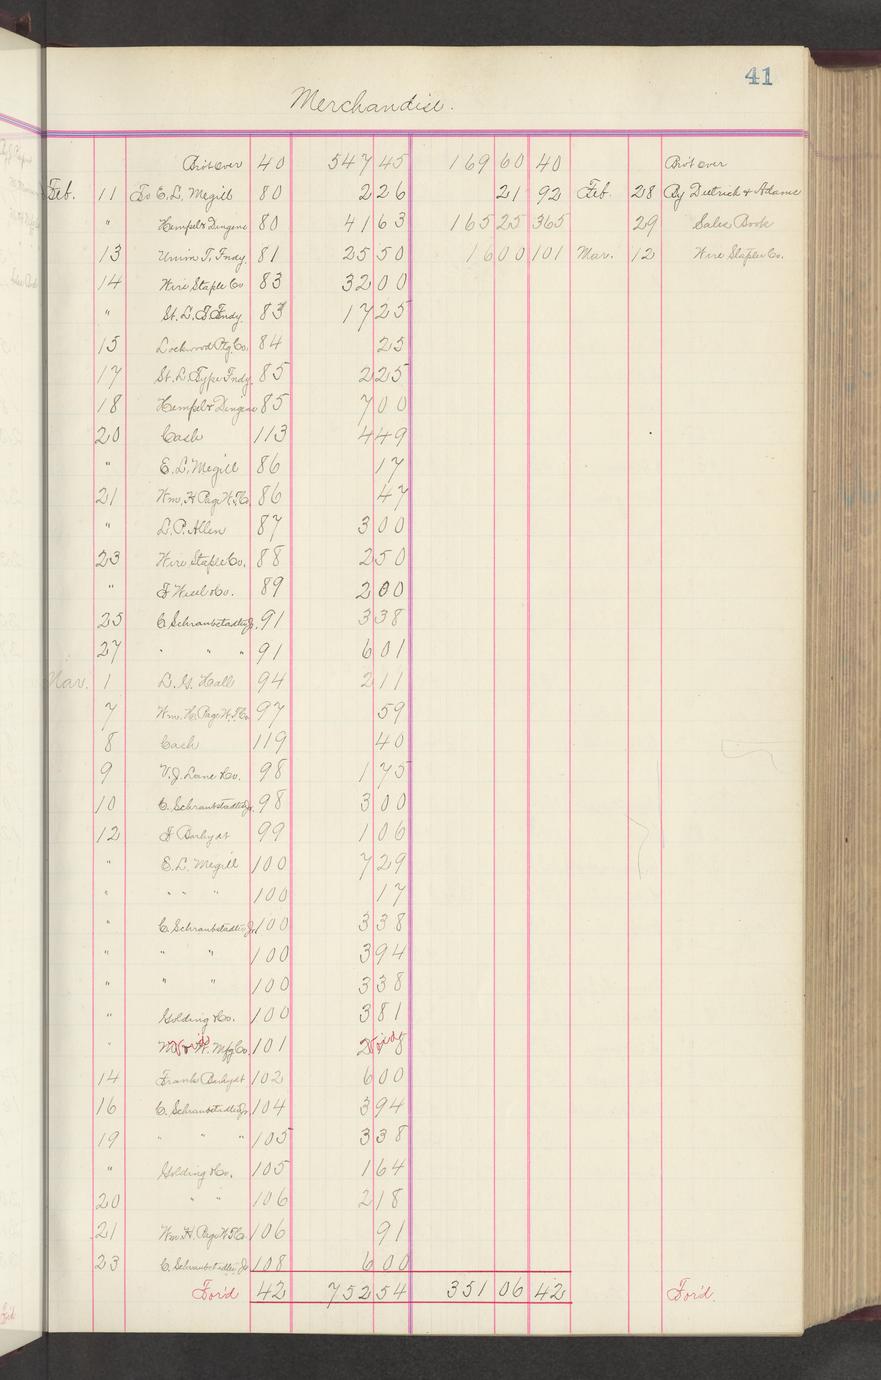 41
Merchandise.
Brot over 40 547 45 169 60 40 Brot over
Feb. 11 To E. L. Megill 80 2 26 21 92 Feb. 28 By Dietrich & Adams
" Hempel & Dingens 80 41 63 165 25 365 29 Sales Book
13 Union T. Fndy. 81 25 50 16 00 101 Mar. 12 Wire Staple Co.
14 Wire Staple Co 83 32 00
" St. L. T. Fndy. 83 17 25
15 Lockwood Ptg. Co. 84 25
17 St. L. Type Fndy. 85 2 25
18 Hempel & Dingens 85 7 00
20 Cash 113 4 49
" E. L. Megill 86 17
21 Wm. H. Page W. T. Co. 86 47
" L. P. Allen 87 3 00
23 Wire Staple Co. 88 2 50
" F Wesel & Co. 89 2 00
25 C. Schraubstadter Jr. 91 3 38
27 " " " 91 6 01
Mar. 1 L. G. Hall 94 2 11
7 Wm. H. Page W. T. Co. 97 59
8 Cash 119 40
9 V. J. Lane & Co. 98 1 75
10 C. Schraubstadter Jr. 98 3 00
12 F Barhydt 99 1 06
" E. L. Megill 100 7 29
" " " " 100 17
" C. Schraubstadter Jr. 100 3 38
" " " 100 3 94
" " " 100 3 38
" Golding & Co. 100 3 81
" Void Mfg Co. 101 Void
14 Frank Barhydt 102 6 00
16 C. Schraubstadter Jr. 104 3 94
19 " " " 105 3 38
" Golding & Co. 105 1 64
20 " " 106 2 18
21 Wm. H. Page W. T. Co. 106 91
23 C. Schraubstadter Jr. 108 6 00
For'd 42 752 54 351 06 42 For'd.